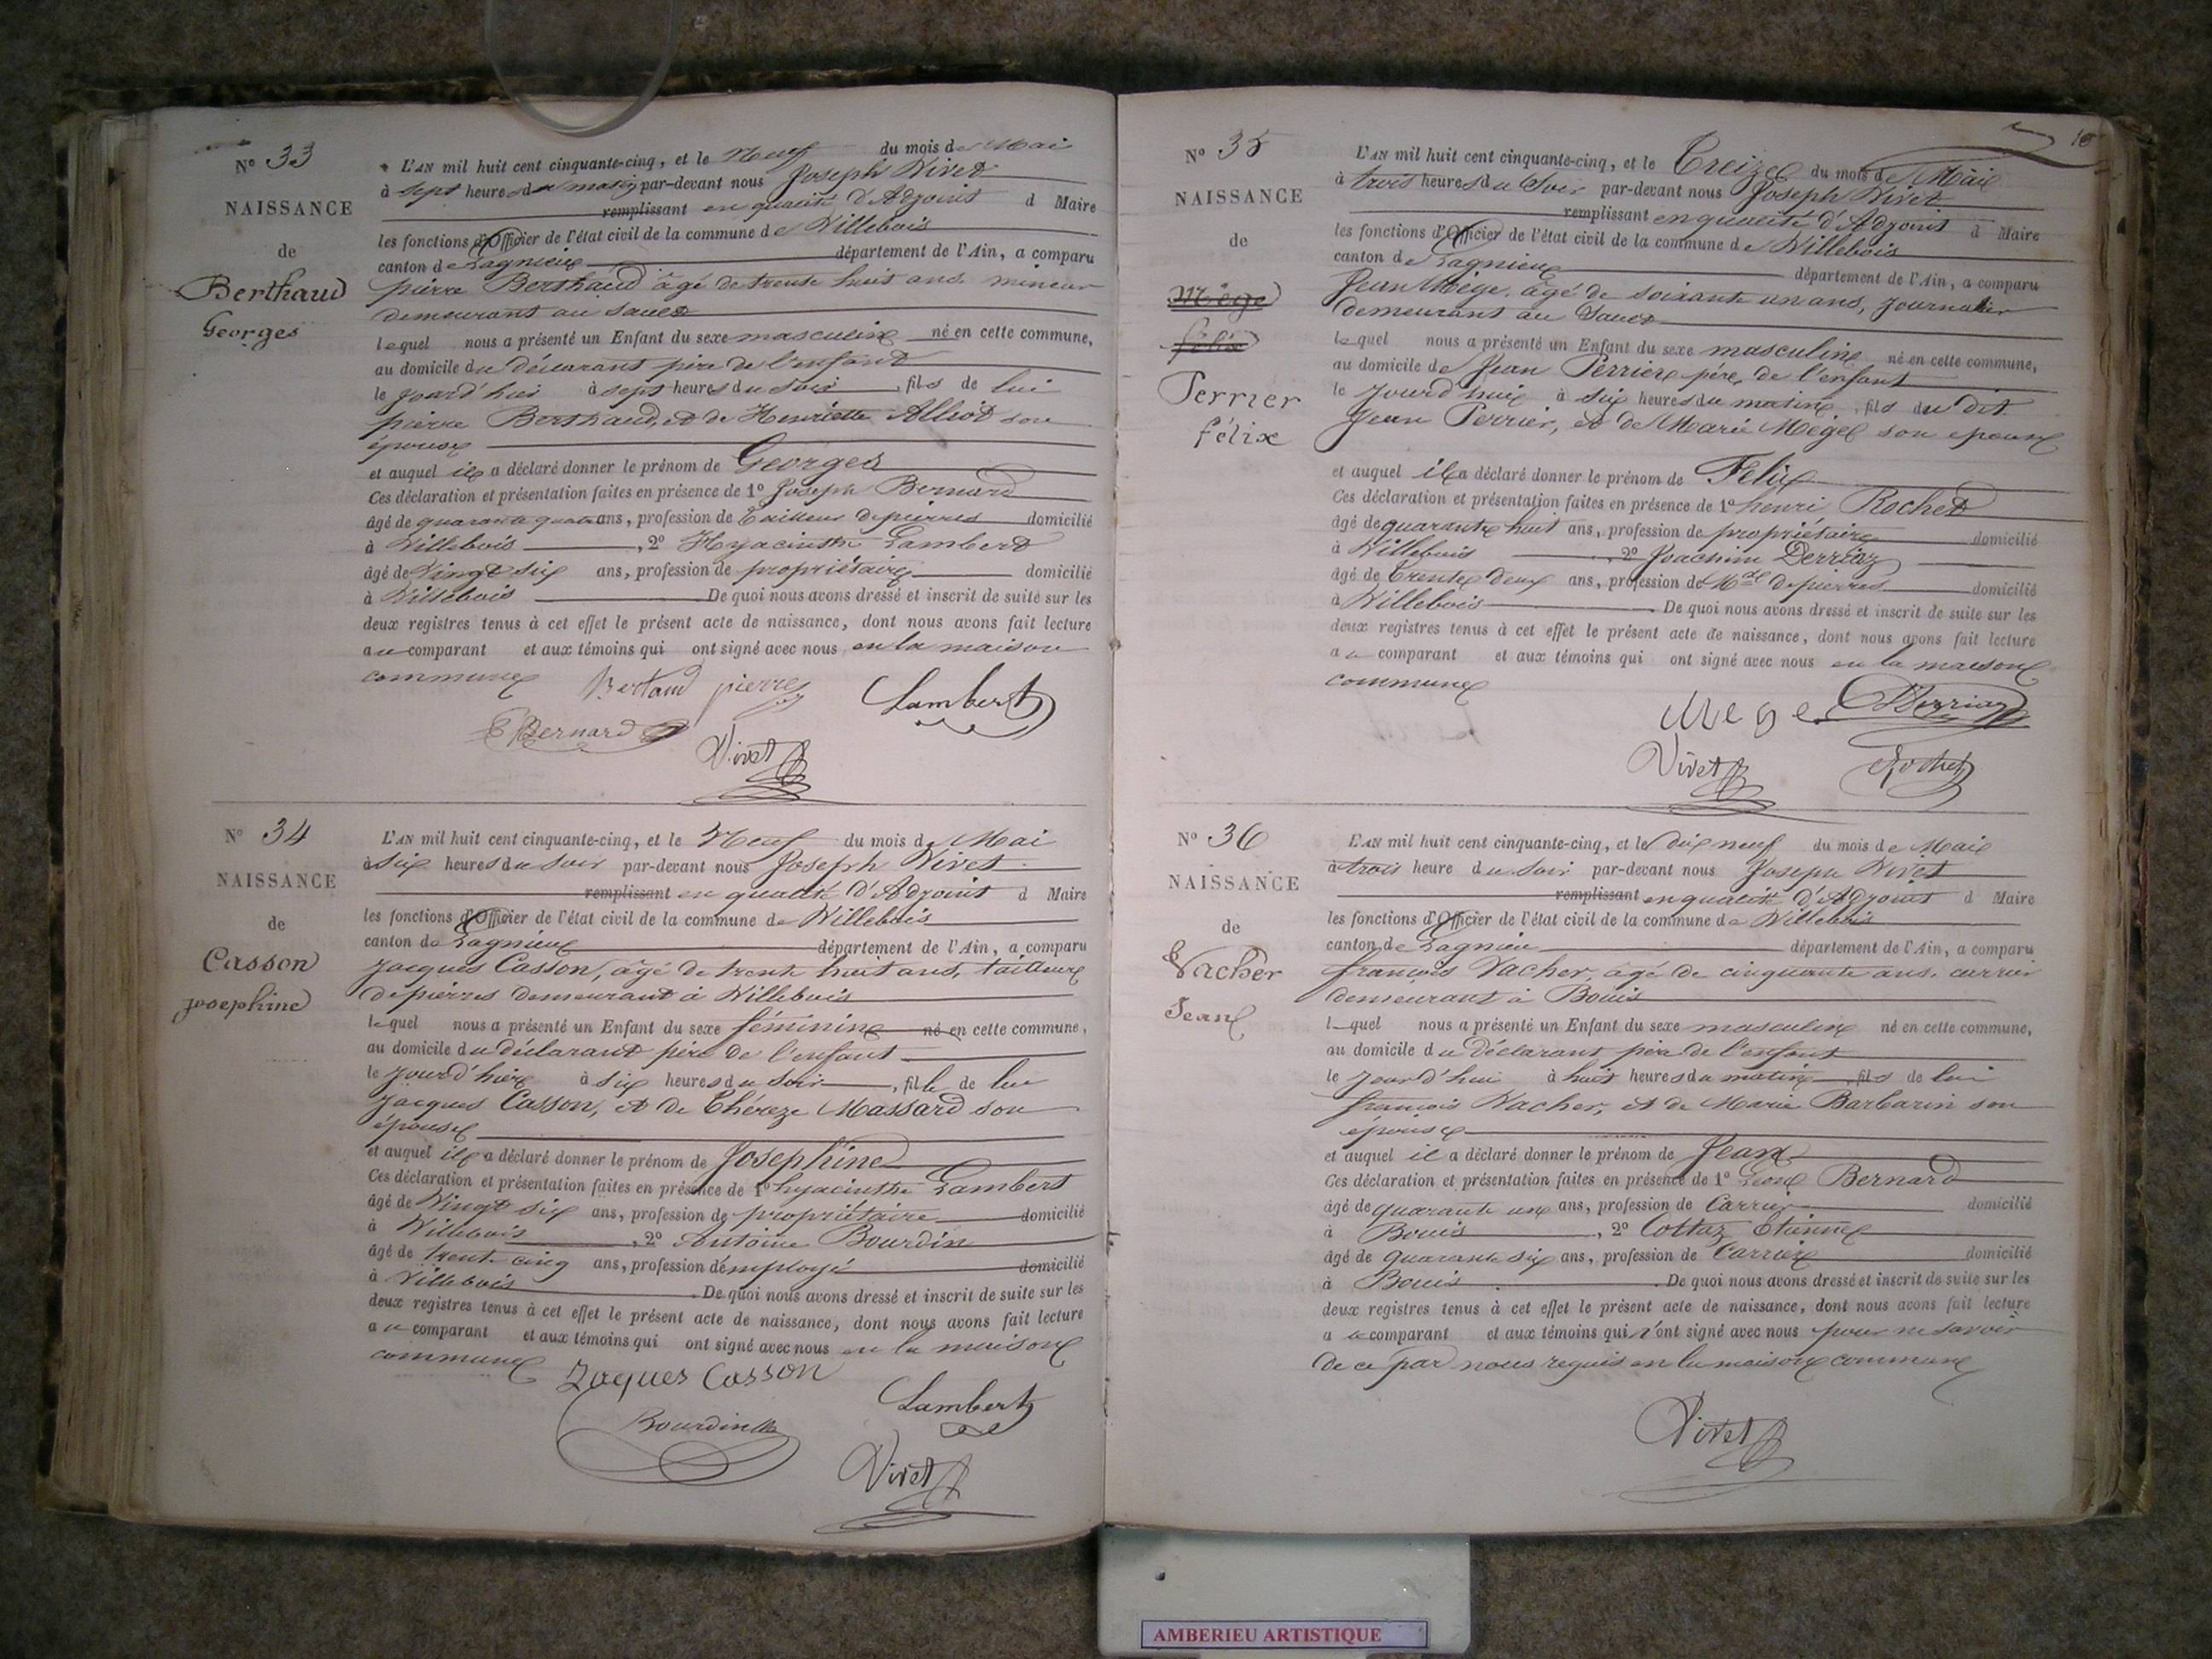 N° 33
NAISSANCE
de
Berthaud
Georges
L'AN mil huit cent cinquante-cinq, et le Neuf du mois de Mai
à sept heures du matin par-devant nous Joseph Vivet
remplissant en qualité d'Adjoint d Maire
les fonctions d'Officier de l'état civil de la commune de Villebois
canton de Lagnieu département de l'Ain, a comparu
pierre Berthaud âgé de trente huit ans mineur
demeurant au Sault
lequel nous a présenté un Enfant du sexe masculin né en cette commune,
au domicile du déclarant père de l'enfant
le jourd'hier à sept heures du soir, fils de lui
pierre Berthaud, et de Henriette Alliod son
épouse
et auquel il a déclaré donner le prénom de Georges
Ces déclaration et présentation faites en présence de 1° Joseph Bernard
âgé de quarante quatre ans, profession de tailleur de pierres domicilié
à Villebois, 2° Hyacinthe Lambert
âgé de Vingt six ans, profession de propriétaire domicilié
à Villebois De quoi nous avons dressé et inscrit de suite sur les
deux registres tenus à cet effet le présent acte de naissance, dont nous avons fait lecture
au comparant et aux témoins qui ont signé avec nous en la maison
commune
Bertaud pierre Lambert
Bernard
Vivet
N° 34
NAISSANCE
de
Casson
josephine
L'AN mil huit cent cinquante-cinq, et le Neuf du mois de Mai
à six heures du soir par-devant nous Joseph Vivet
remplissant en qualité d'Adjoint d Maire
les fonctions d'Officier de l'état civil de la commune de Villebois
canton de Lagnieu département de l'Ain, a comparu
Jacques Casson, âgé de trente huit ans, tailleur
de pierres demeurant à Villebois
lequel nous a présenté un Enfant du sexe féminin né en cette commune,
au domicile du déclarant père de l'enfant
le jourd'hier à six heures du soir, fille de lui
Jacques Casson, et de Thérèze Massard son
épouse
et auquel il a déclaré donner le prénom de Josephine
Ces déclaration et présentation faites en présence de 1° hyacinthe Lambert
âgé de Vingt six ans, profession de propriétaire domicilié
à Villebois, 2° Antoine Bourdin
âgé de trente cinq ans, profession d'employé domicilié
à Villebois. De quoi nous avons dressé et inscrit de suite sur les
deux registres tenus à cet effet le présent acte de naissance, dont nous avons fait lecture
au comparant et aux témoins qui ont signé avec nous en la maison
commune
Jaques Casson
Lambert
Bourdin
Vivet
16
N° 35
NAISSANCE
de
Mège
félix
Perrier
félix
L'AN mil huit cent cinquante-cinq, et le Treize du mois de Mai
à trois heures du Soir par-devant nous Joseph Vivet
remplissant en qualité d'Adjoint d Maire
les fonctions d'Officier de l'état civil de la commune de Villebois
canton de Lagnieu département de l'Ain, a comparu
Jean Mège, âgé de soixante un ans, journalier
demeurant au Sault
lequel nous a présenté un Enfant du sexe masculin né en cette commune,
au domicile de Jean Perrier père de l'enfant
le jourd'hui à six heures du matin, fils du dit
Jean Perrier, et de Marie Mège son épouse
et auquel il a déclaré donner le prénom de Felix
Ces déclaration et présentation faites en présence de 1° henri Rochet
âgé de quarante huit ans, profession de propriétaire domicilié
à Villebois, 2° Joachim Derriaz
âgé de trente deux ans, profession de Md de pierres domicilié
à Villebois. De quoi nous avons dressé et inscrit de suite sur les
deux registres tenus à cet effet le présent acte de naissance, dont nous avons fait lecture
au comparant et aux témoins qui ont signé avec nous en la maison
commune
Mege Derriaz
Vivet Rochet
N° 36
NAISSANCE
de
Vacher
Jean
L'AN mil huit cent cinquante-cinq, et le dix neuf du mois de Mai
à trois heure du soir par-devant nous Joseph Vivet
remplissant en qualité d'Adjoint d Maire
les fonctions d'Officier de l'état civil de la commune de Villebois
canton de Lagnieu département de l'Ain, a comparu
françois Vacher, âgé de cinquante ans, carrier
demeurant à Bouis
lequel nous a présenté un Enfant du sexe masculin né en cette commune,
au domicile du déclarant père de l'enfant
le jourd'hui à huit heures du matin fils de lui
françois Vacher, et de Marie Barbarin son
épouse
et auquel il a déclaré donner le prénom de Jean
Ces déclaration et présentation faites en présence de 1° Bernard
âgé de quarante un ans, profession de Carrier domicilié
à Bouis, 2° Cottaz Etienne
âgé de quarante six ans, profession de Carrier domicilié
à Bouis. De quoi nous avons dressé et inscrit de suite sur les
deux registres tenus à cet effet le présent acte de naissance, dont nous avons fait lecture
au comparant et aux témoins qui n'ont signé avec nous pour ne savoir
de ce par nous requis en la maison commune
Vivet
AMBERIEU ARTISTIQUE